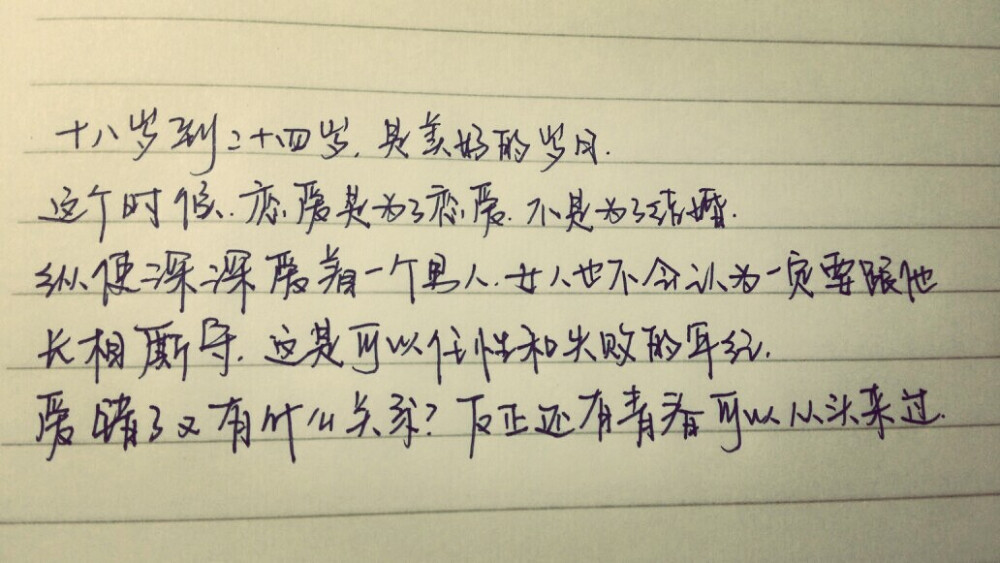 十八岁到二十四岁,是美好的岁月.
这个时候.恋爱是为了恋爱.不是为了结婚.
纵使深深爱着一个男人.女人也不会认为一定要跟他
长相厮守.这是可以任性和失败的年纪.
爱错了又有什么关系?反正还有青春可以从头来过.